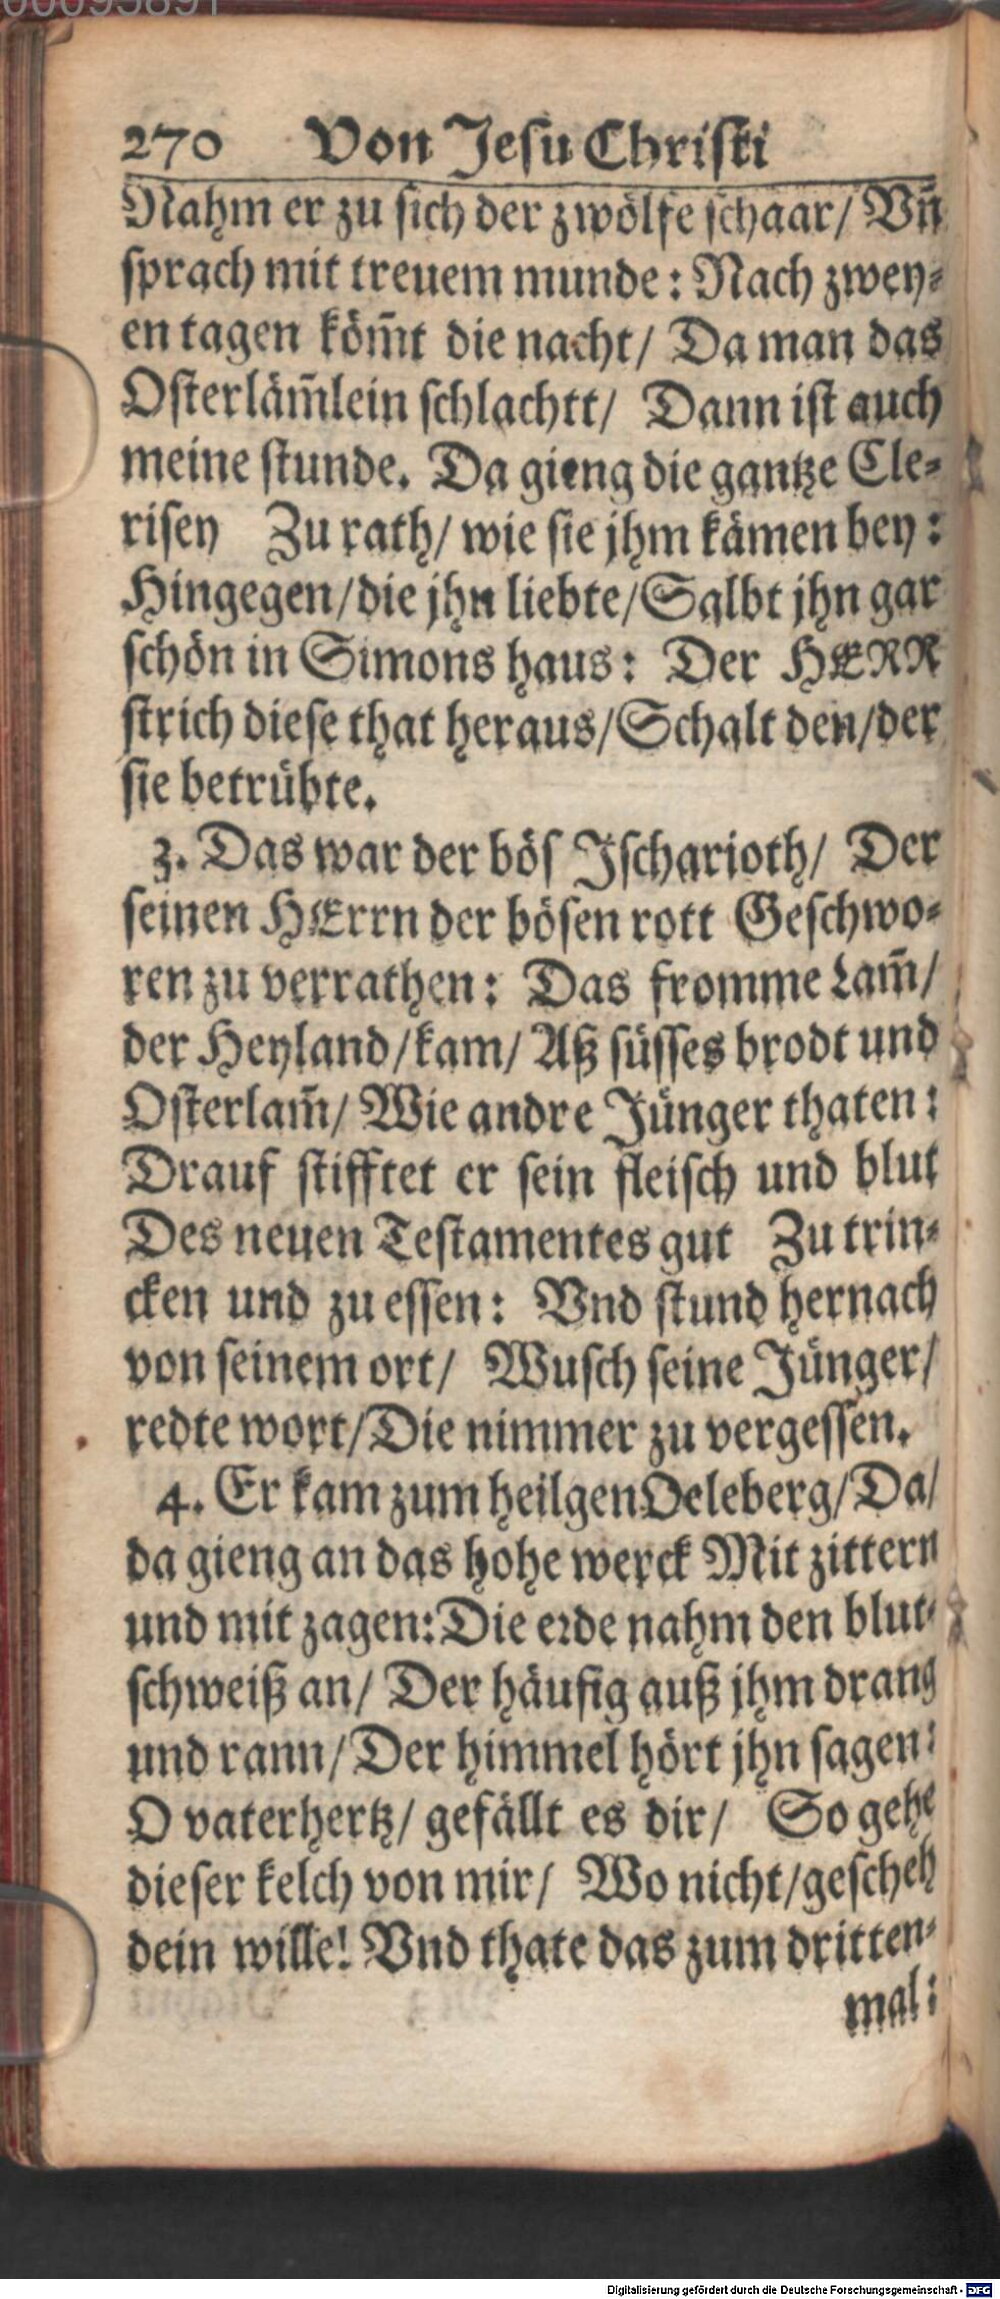 00095891
270 Von Jesu Christi
Nahm er zu sich der zwölfe schaar/ Vn̄
sprach mit treuem munde: Nach zwey⸗
en tagen köm̄t die nacht/ Da man das
Osterläm̄lein schlachtt/ Dann ist auch
meine stunde. Da gieng die gantze Cle⸗
risey Zu rath/ wie sie jhm kämen bey:
Hingegen/die jhn liebte/Salbt jhn gar
schön in Simons haus: Der HERR
strich diese that heraus/Schalt den/der
sie betrübte.
3. Das war der bös Jscharioth/ Der
seinen HErrn der bösen rott Geschwo⸗
ren zu verrathen: Das fromme Lam̄/
der Heyland/kam/ Aß süsses brodt und
Osterlam̄/ Wie andre Jünger thaten:
Drauf stifftet er sein fleisch und blut
Des neuen Testamentes gut Zu trin⸗
cken und zu essen: Vnd stund hernach
von seinem ort/ Wusch seine Jünger/
redte wort/Die nimmer zu vergessen.
4. Er kam zum heilgen Oeleberg/Da/
da gieng an das hohe werck Mit zittern
und mit zagen:Die erde nahm den blut⸗
schweiß an/ Der häufig auß jhm drang
und rann/Der himmel hört jhn sagen:
O vaterhertz/ gefällt es dir/ So gehe
dieser kelch von mir/ Wo nicht/gescheh
dein wille! Vnd thate das zum dritten⸗
mal:
Digitalisierung gefördert durch die Deutsche Forschungsgemeinschaft - DFG